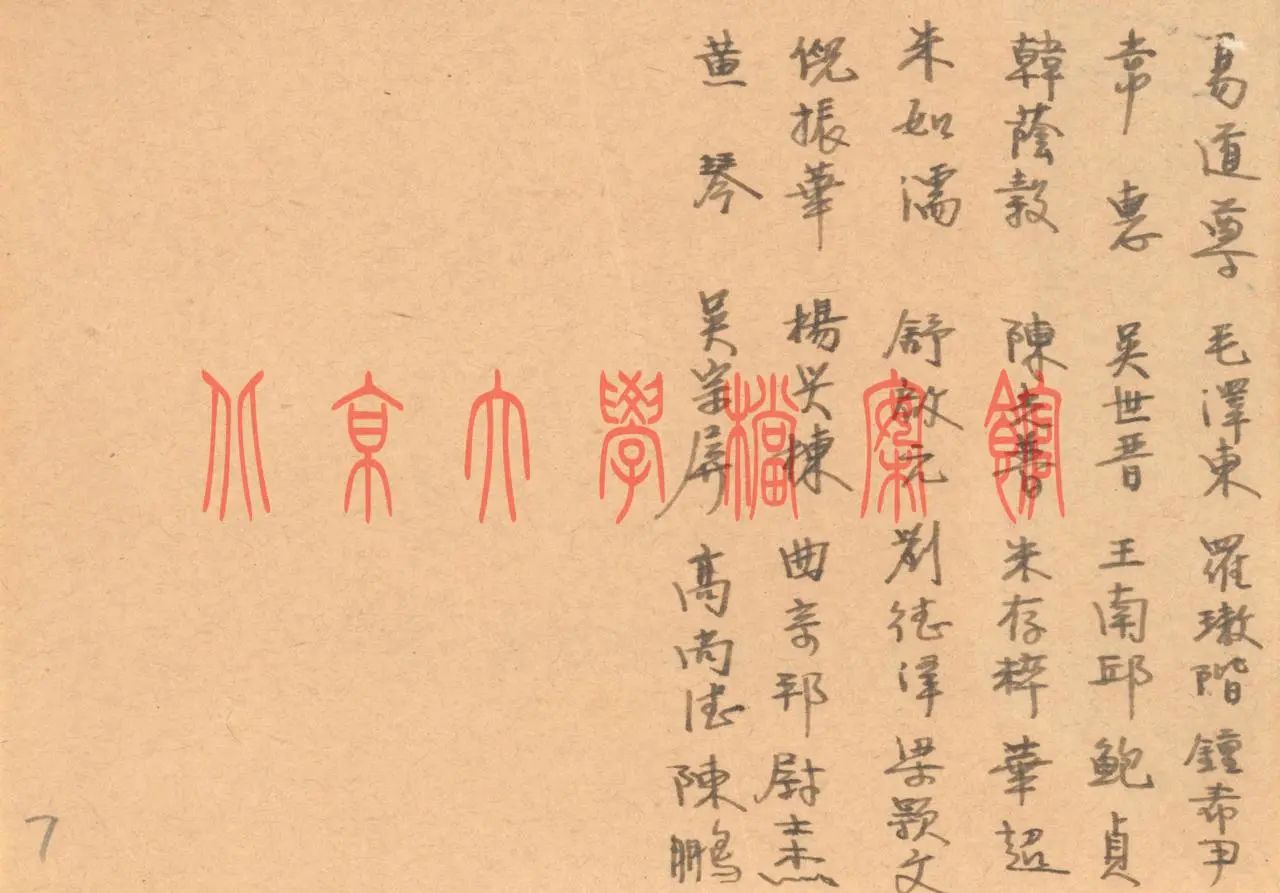 易道尊 毛澤東 羅璈階 鐘希尹
常惠 吳世晋 王南邱 鮑貞
韓蔭穀 陳 普 朱存粹 華超
朱如濡 舒啟元 劉德澤 梁颖文
倪振華 楊興棟 曲宗邦 尉杰
黄琴 吳宗屏 高尚德 陳鵬
北京大學檔案館
7